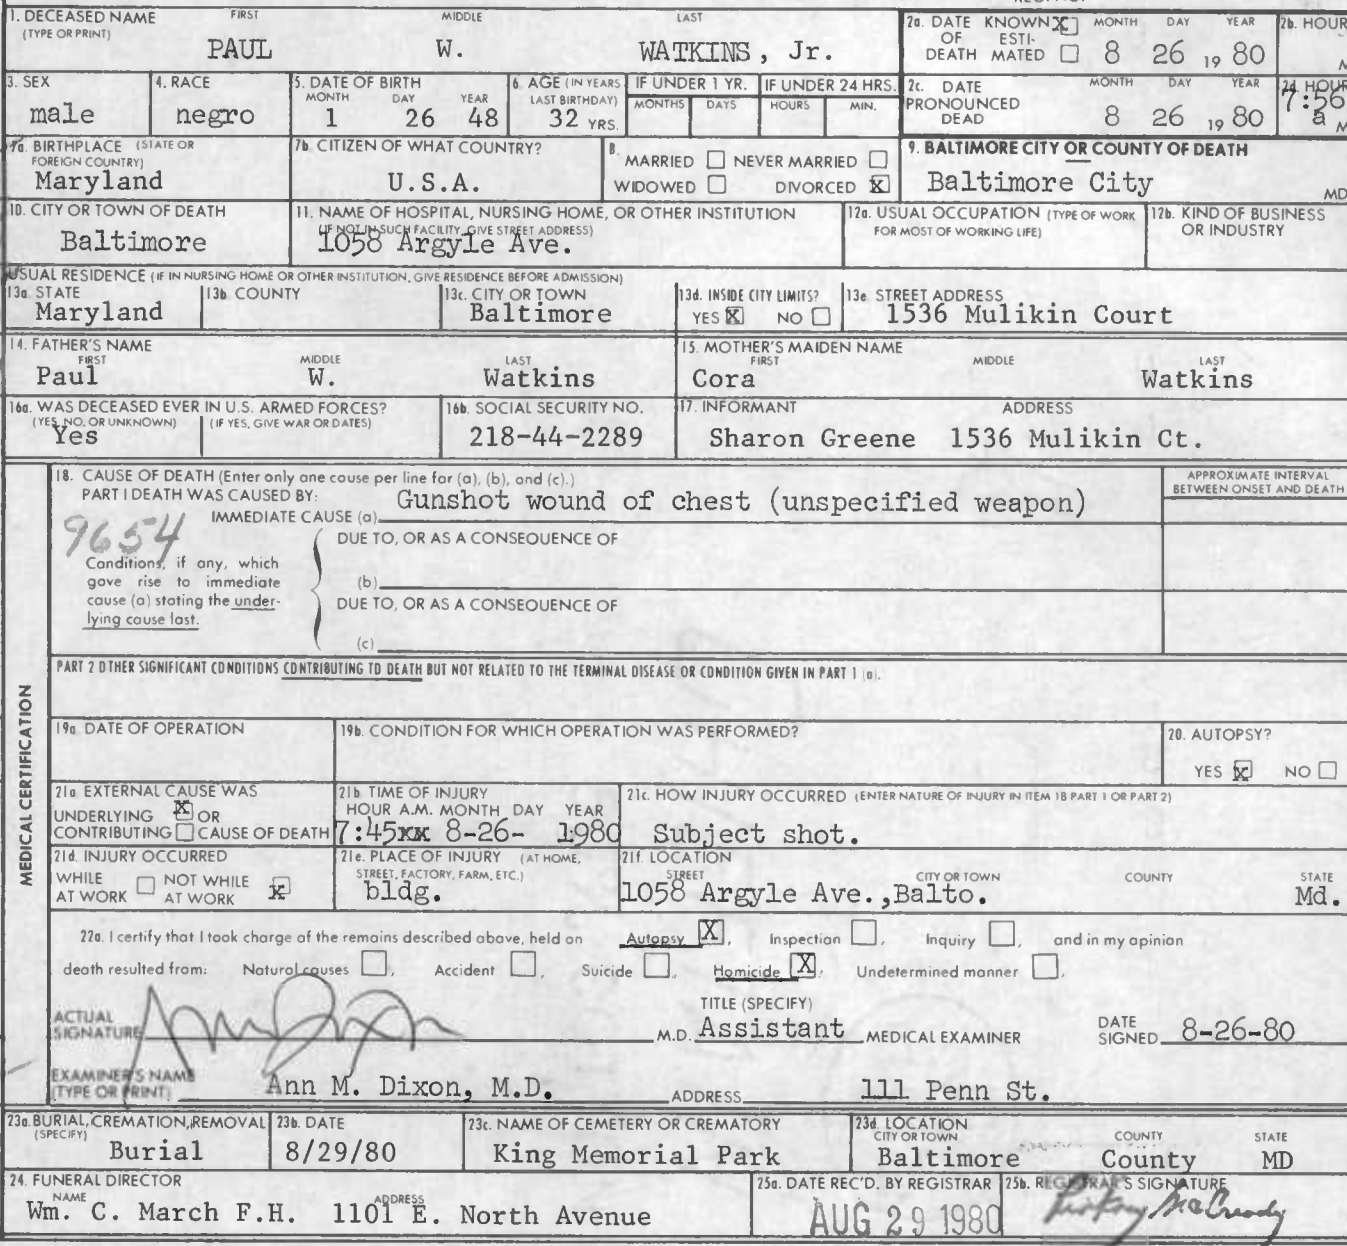 1. DECEASED NAME (TYPE OR PRINT) FIRST MIDDLE LAST
PAUL W. WATKINS, Jr.
2a. DATE OF DEATH KNOWN X ESTIMATED MONTH DAY YEAR
8 26 19 80
2b. HOUR
M
3. SEX
male
4. RACE
negro
5. DATE OF BIRTH MONTH DAY YEAR
1 26 48
6. AGE (IN YEARS LAST BIRTHDAY)
32 YRS.
IF UNDER 1 YR. MONTHS DAYS
IF UNDER 24 HRS. HOURS MIN.
2c. DATE PRONOUNCED DEAD MONTH DAY YEAR
8 26 19 80
2d. HOUR
7:56 a M
7a. BIRTHPLACE (STATE OR FOREIGN COUNTRY)
Maryland
7b. CITIZEN OF WHAT COUNTRY?
U.S.A.
8. MARRIED NEVER MARRIED
WIDOWED DIVORCED X
9. BALTIMORE CITY OR COUNTY OF DEATH
Baltimore City MD
10. CITY OR TOWN OF DEATH
Baltimore
11. NAME OF HOSPITAL, NURSING HOME, OR OTHER INSTITUTION
(IF NOT IN SUCH FACILITY, GIVE STREET ADDRESS)
1058 Argyle Ave.
12a. USUAL OCCUPATION (TYPE OF WORK FOR MOST OF WORKING LIFE)
12b. KIND OF BUSINESS OR INDUSTRY
USUAL RESIDENCE (IF IN NURSING HOME OR OTHER INSTITUTION, GIVE RESIDENCE BEFORE ADMISSION)
13a. STATE
Maryland
13b. COUNTY
13c. CITY OR TOWN
Baltimore
13d. INSIDE CITY LIMITS?
YES X NO
13e. STREET ADDRESS
1536 Mulikin Court
14. FATHER'S NAME FIRST MIDDLE LAST
Paul W. Watkins
15. MOTHER'S MAIDEN NAME FIRST MIDDLE LAST
Cora Watkins
16a. WAS DECEASED EVER IN U.S. ARMED FORCES?
(YES, NO, OR UNKNOWN) (IF YES, GIVE WAR OR DATES)
Yes
16b. SOCIAL SECURITY NO.
218-44-2289
17. INFORMANT ADDRESS
Sharon Greene 1536 Mulikin Ct.
MEDICAL CERTIFICATION
18. CAUSE OF DEATH (Enter only one cause per line for (a), (b), and (c).)
PART I DEATH WAS CAUSED BY:
IMMEDIATE CAUSE (a) Gunshot wound of chest (unspecified weapon)
APPROXIMATE INTERVAL BETWEEN ONSET AND DEATH
9654
DUE TO, OR AS A CONSEQUENCE OF
Conditions, if any, which gave rise to immediate cause (a) stating the underlying cause last.
(b)
DUE TO, OR AS A CONSEQUENCE OF
(c)
PART 2 OTHER SIGNIFICANT CONDITIONS CONTRIBUTING TO DEATH BUT NOT RELATED TO THE TERMINAL DISEASE OR CONDITION GIVEN IN PART 1 (a).
19a. DATE OF OPERATION
19b. CONDITION FOR WHICH OPERATION WAS PERFORMED?
20. AUTOPSY?
YES X NO
21a. EXTERNAL CAUSE WAS
UNDERLYING X OR
CONTRIBUTING CAUSE OF DEATH
21b. TIME OF INJURY
HOUR A.M. MONTH DAY YEAR
7:45xx 8-26- 1980
21c. HOW INJURY OCCURRED (ENTER NATURE OF INJURY IN ITEM 18 PART 1 OR PART 2)
Subject shot.
21d. INJURY OCCURRED
WHILE AT WORK NOT WHILE AT WORK X
21e. PLACE OF INJURY (AT HOME, STREET, FACTORY, FARM, ETC.)
bldg.
21f. LOCATION STREET CITY OR TOWN COUNTY STATE
1058 Argyle Ave.,Balto. Md.
22a. I certify that I took charge of the remains described above, held an Autopsy X, Inspection , Inquiry , and in my opinion
death resulted from: Natural causes , Accident , Suicide , Homicide X, Undetermined manner ,
ACTUAL SIGNATURE
M.D. TITLE (SPECIFY) Assistant MEDICAL EXAMINER
DATE SIGNED 8-26-80
EXAMINER'S NAME (TYPE OR PRINT) Ann M. Dixon, M.D. ADDRESS 111 Penn St.
23a. BURIAL, CREMATION, REMOVAL (SPECIFY)
Burial
23b. DATE
8/29/80
23c. NAME OF CEMETERY OR CREMATORY
King Memorial Park
23d. LOCATION CITY OR TOWN COUNTY STATE
Baltimore County MD
24. FUNERAL DIRECTOR
NAME ADDRESS
Wm. C. March F.H. 1101 E. North Avenue
25a. DATE REC'D. BY REGISTRAR
AUG 29 1980
25b. REGISTRAR'S SIGNATURE